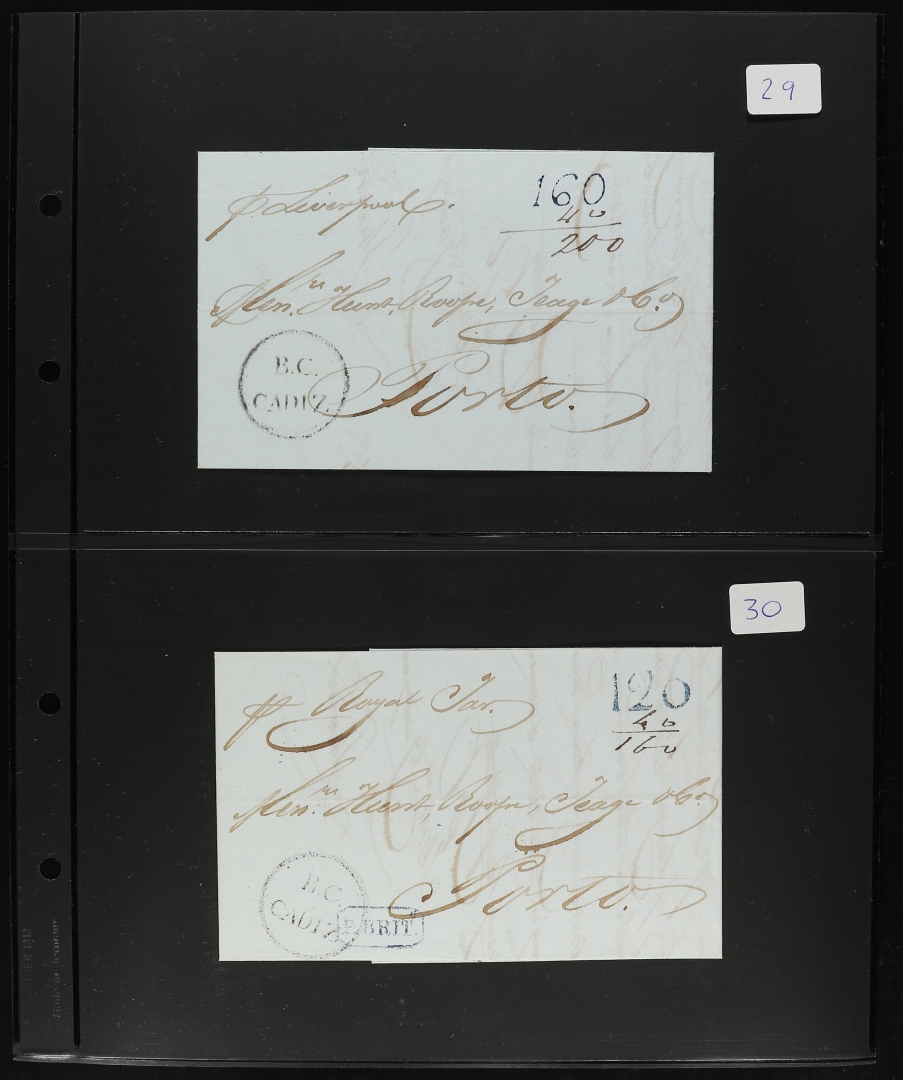 29
p. Liverpool.
160
40
200
Messrs. Hunt, Roope, Teage & Co.
B.C.
CADIZ.
Porto.
30
pr Royal Tar.
120
40
160
Messrs. Hunt, Roope, Teage & Co.
B.C.
CADIZ.
P. BRIT.
Porto.